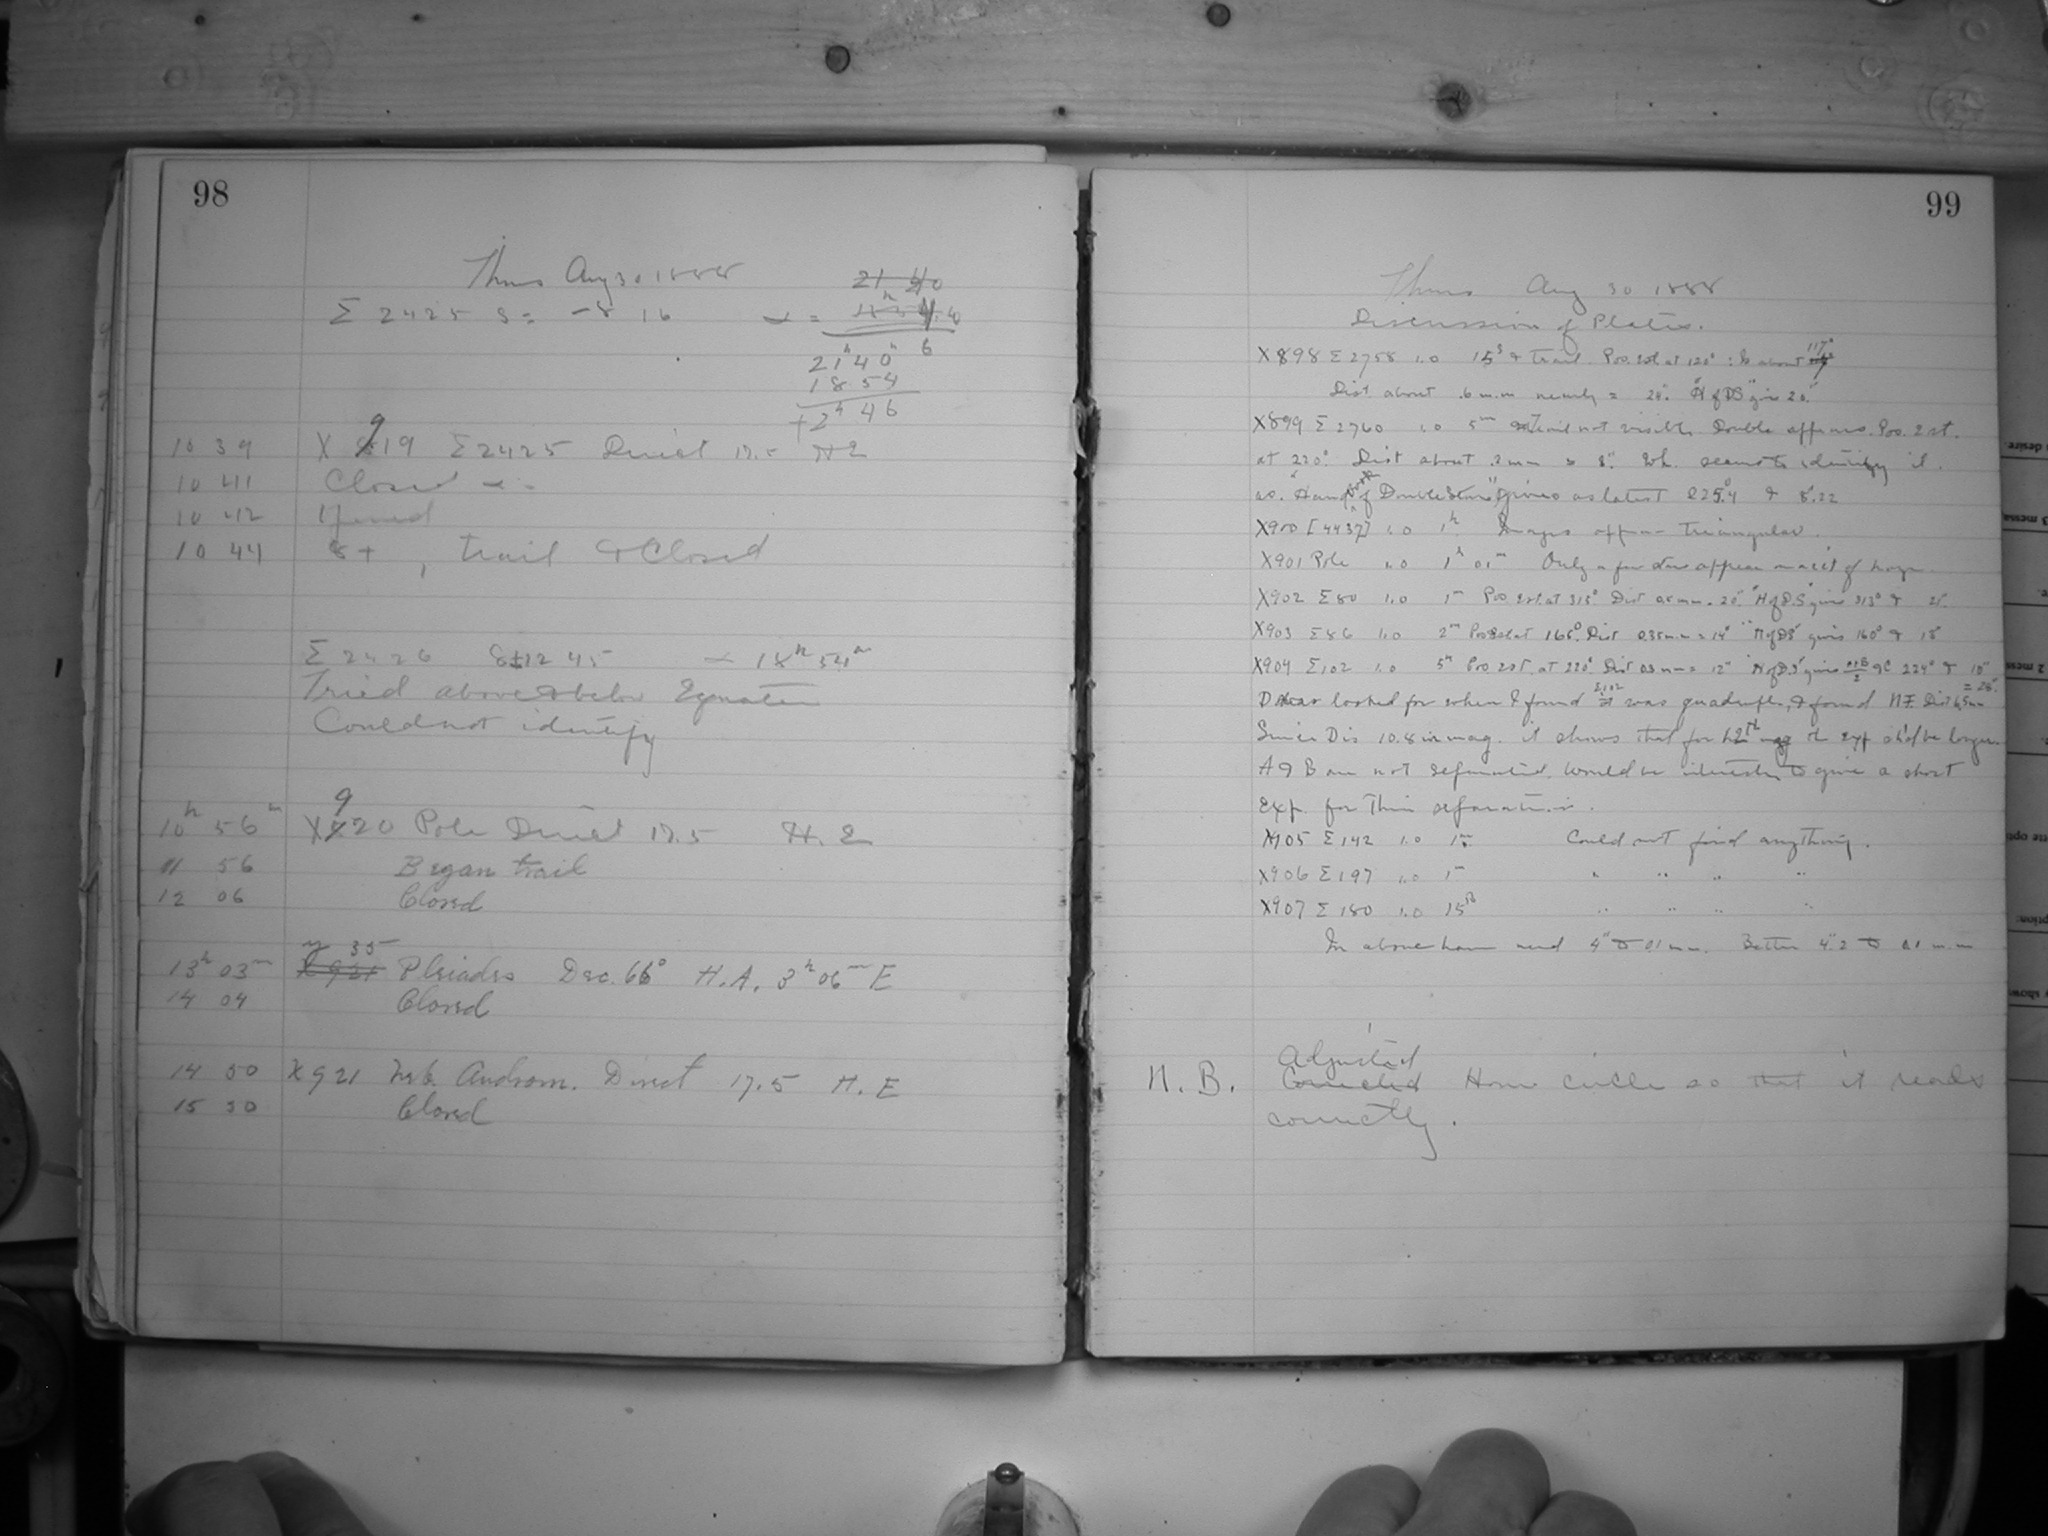 98
Thurs Aug 30 1888
21 40
Σ 2425 δ = -8 16 α =
21h 40m 6
18 54
+2h 46
10 39 X 919 Σ2425 Direct 17.5 H E
10 41 Closed
10 42 Opened
10 44 8+, trail & Closed
Σ 2426 δ +12 45 α 18h 54m
Tried above & below Equator
Could not identify
10h 56m X920 Pole Direct 17.5 H. E
11 56 Began trail
12 06 Closed
35
13h 03m X 921 Pleiades Dec. 66° H.A. 3h 06m E
14 04 Closed
14 50 X921 Neb. Androm. Direct 17.5 H. E
15 50 Closed
99
Thurs Aug 30 1888
Discussion of Plates.
X898 Σ2758 1.0 15s & trail Pos. est at 120° : Is about 117°
Dist about .6 m.m nearly = 24". "H of DS" give 20."
X899 Σ2760 1.0 5m Trail not visible Double appears. Pos. est.
at 220°. Dist about .2mm = 8". Wh. seems to identify it.
as. "Handbook of Double Stars" gives as latest 225°.4 & 8".22
X900 [4437] 1.0 1h Images appear triangular.
X901 Pole 1.0 1h 01m Only a few stars appear
X902 Σ80 1.0 1m Pos. est. at 313° Dist 0.5 mm = 20". "H of D.S" give 313° & 21"
X903 Σ86 1.0 2m Pos est at 165°. Dist 0.35 m.m = 14" "H of DS" gives 160° & 15"
X904 Σ102 1.0 5m Pos. est. at 220° Dist 0.3 mm = 12" "H of D.S" gives AB/2 & C 224° & 10"
D was looked for when I found Σ102 was quadruple, & found N.F. Dist 6.5mm = 26".
Since D is 10.8 in mag. it shows that for 12th mag the exp. sh'd be longer.
A & B are not separated. Would be interesting to give a short
Exp. for their separation.
X905 Σ142 1.0 1m Could not find anything.
X906 Σ197 1.0 1m " " " "
X907 Σ180 1.0 15s " " " "
In above have used 4" to 0.1 mm. Better 4".2 to 0.1 m.m
Adjusted
N. B. Corrected Hour circle so that it reads
correctly.